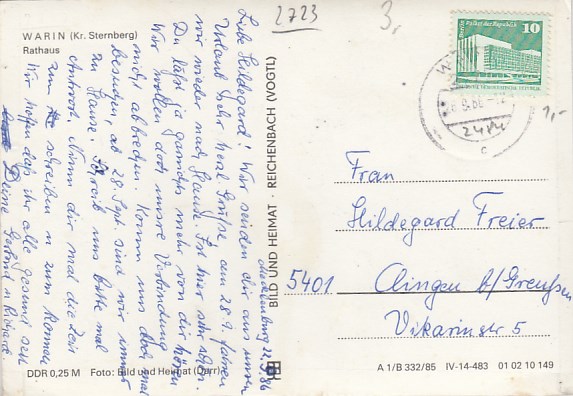 WARIN (Kr. Sternberg)
Rathaus
2723
3,-
Berlin, Palast der Republik
10
DEUTSCHE DEMOKRATISCHE REPUBLIK
2404
c
1,-
Mecklenburg 22.9.86
Liebe Hildegard! Wir senden dir aus unsern
Urlaub sehr herzl. Grüße. am 28.9. fahren
wir wieder nach Hause. Ist hier sehr schön.
Du läßt ja garnichts mehr von dir hören
Wir wollen doch unsere Verbindung
nicht abbrechen. Komm uns doch mal
besuchen, ab 28. Sept. sind wir immer
zu Hause. Schreib uns bitte mal
Antwort. Nimm dir mal die Zeit
zum schreiben u. zum kommen
Wir hoffen daß ihr alle gesund seid
Deine Gertrud u. Richard.
BILD UND HEIMAT · REICHENBACH (VOGTL)
Frau
Hildegard Freier
5401 Clingen b/Greußen
Vikarinstr 5
DDR 0,25 M Foto: Bild und Heimat (Darr)
A 1/B 332/85 IV-14-483 01 02 10 149